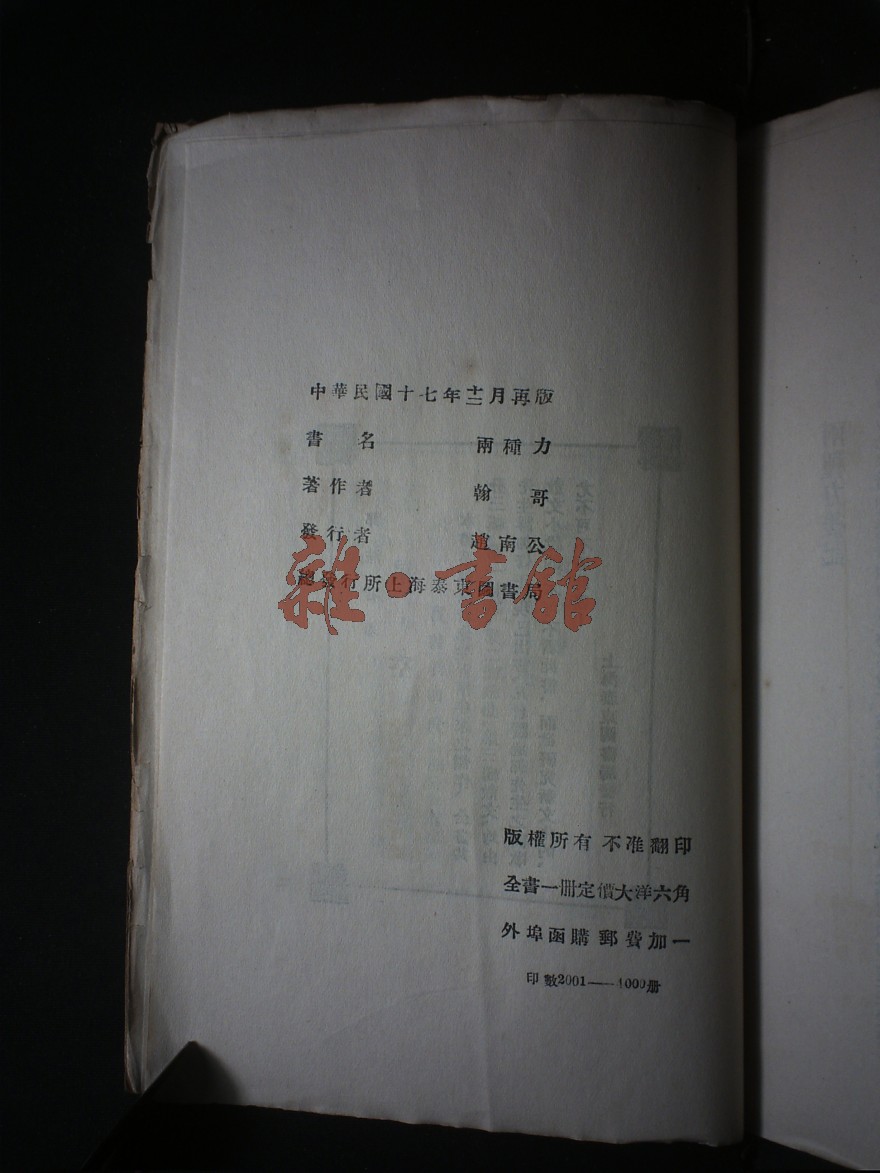 中華民國十七年十二月再版
書名 兩種力
著作者 翰哥
發行者 趙南公
總發行所上海泰東圖書局
雜·書館
版權所有 不准翻印
全書一册定價大洋六角
外埠函購郵費加一
印數2001——4000册